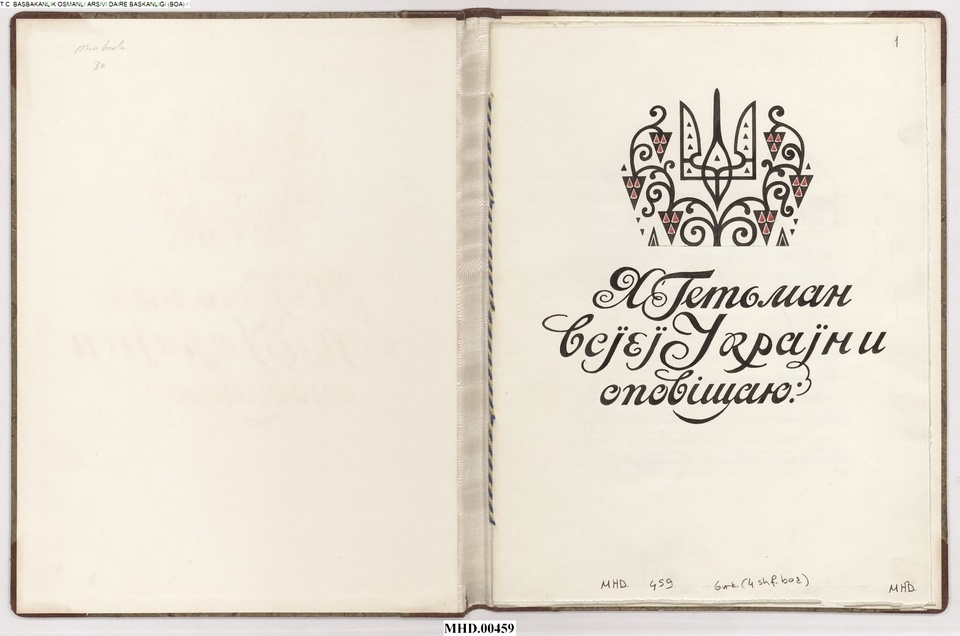 T.C. BAŞBAKANLIK OSMANLI ARŞİVİ DAİRE BAŞKANLIĞI (BOA)
30
1
Я Гетьман
всјєј Украјни
оповіщаю:
MHD. 459 (4 shf. boz)
MHD.
MHD.00459